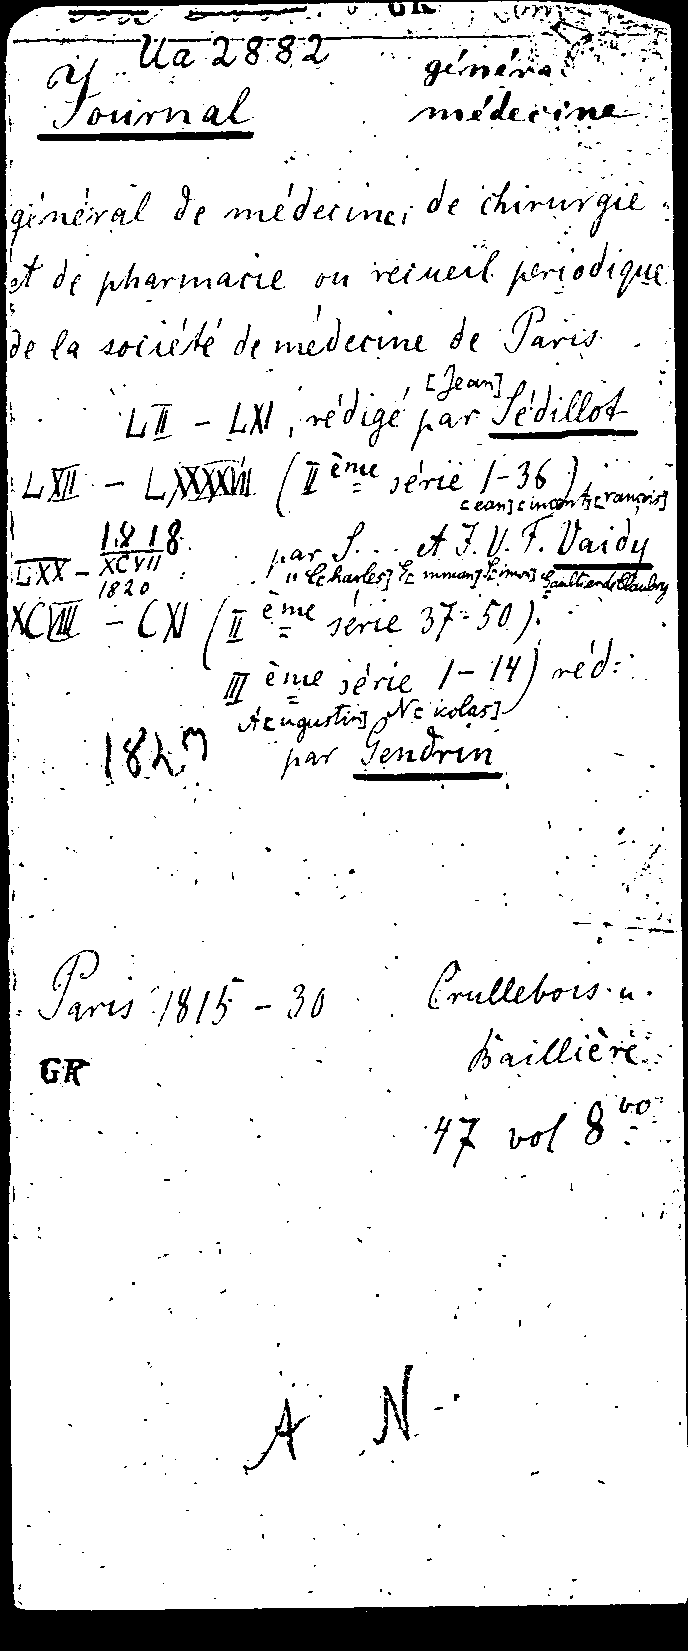 GR
Ua 2882
généra
Journal
médecine
général de médecine, de chirurgie
et de pharmacie ou recueil periodique
de la société de médecine de Paris
[Jean]
LII - LXI, rédigé par Sédillot
LXII - LXXXXVII (II ème série 1-36)
[ean] [incent] [rançois]
1818
par S... et J. V. F. Vaidy
LXX - XCVII
" C[harles] E[mmanuel] S[imon] Gaultier de Claubry
1820
XCVIII - CXI (II ème série 37-50).
III ème série 1-14) réd.
A[ugustin] N[icolas]
1827
par Gendrin
Paris 1815-30
Crullebois u.
Baillière
GR
47 vol 8vo
A N